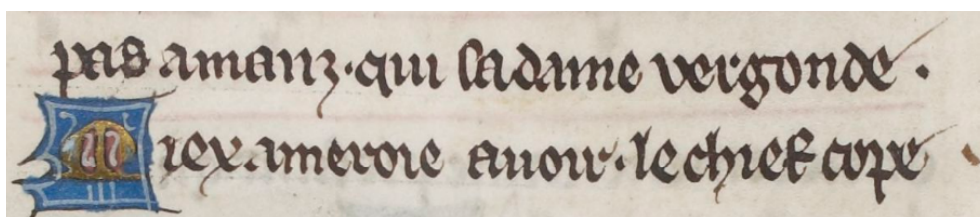 pas amanz · qui sa dame vergonde ·
Miex · ameroie auoir · le chief cope